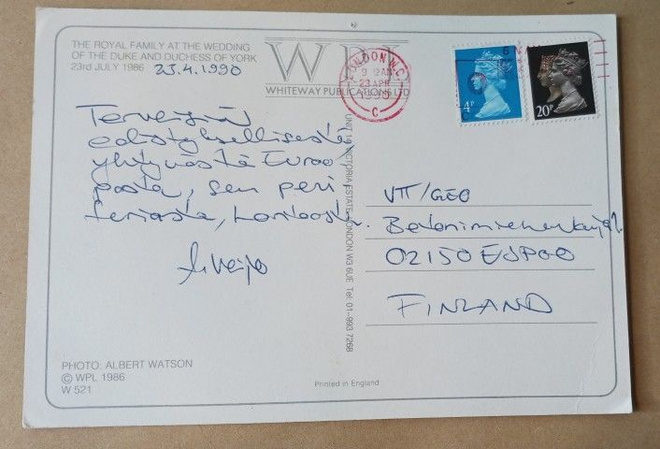 THE ROYAL FAMILY AT THE WEDDING
OF THE DUKE AND DUCHESS OF YORK
23rd JULY 1986 23.4.1990
WPL
WHITEWAY PUBLICATIONS LTD
LONDON W.C.
9 AM
23 APR
1990
C
4P
20P
Terveisiä
edistyksellisestä
yhtyvästä Euroo
pasta, sen peri
feriasta, Lontoosta.
Veijo
UNIT 19 VICTORIA ESTATE LONDON W3 6UE Tel: 01-993 7268
VTT/GEO
Betonimiehenkuja
02150 ESPOO
FINLAND
PHOTO: ALBERT WATSON
© WPL 1986
W 521
Printed in England